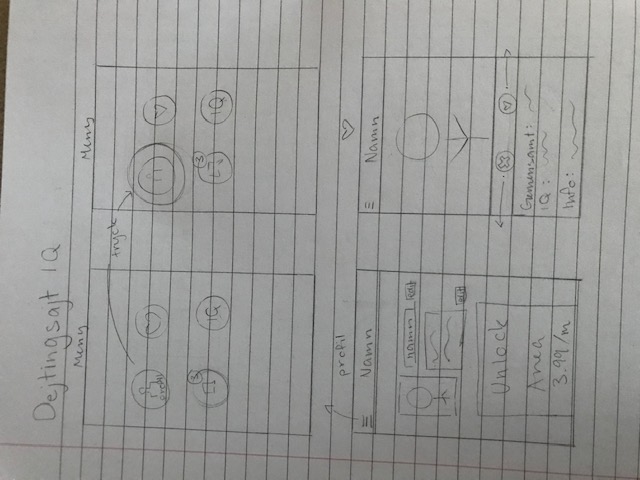 Dejtingsajt IQ
Meny
Meny
tryck
profil
3
IQ
3
IQ
profil
Namn
namn
edit
edit
Unlock
Area
3.99/m
Namn
Gemensamt:
IQ:
Info: